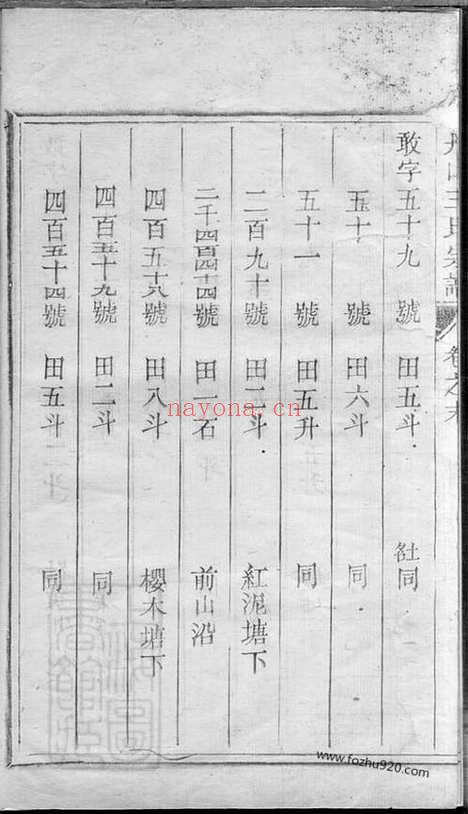 王氏宗譜 卷之末
敢字五十九號 田五斗 土名同
五十號 田六斗 同
五十一號 田五升 同
二百九十號 田二斗 紅泥塘下
二千四百四十四號 田一石 前山沿
四百五十八號 田八斗 櫻木塘下
四百五十九號 田二斗 同
四百五十四號 田五斗 同
nayona.cn
www.fozhu920.com